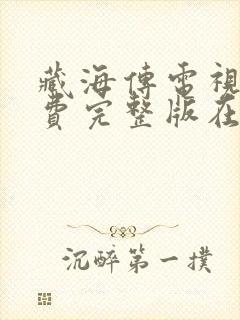 藏海傳電視
費完整版在
沉醉第一撲